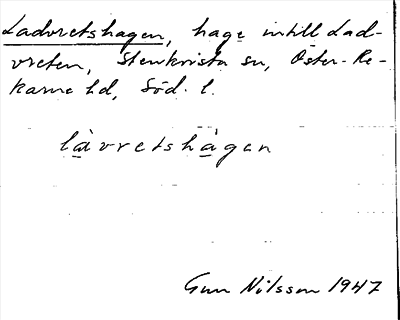 Ladvretshagen, hage intill Lad-
vreten, Stenkvista sn, Öster-Re-
karne hd, Söd. l.
làvretshàgen
Gun Nilsson 1947